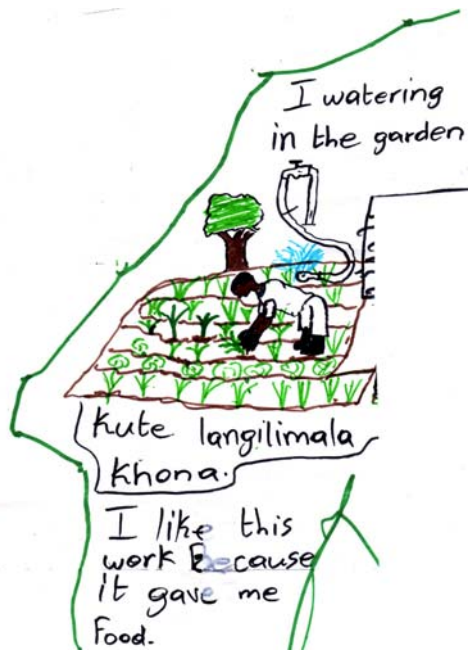 I watering
in the garden
Kute langilimala
Khona.
I like this
work Because
it gave me
Food.